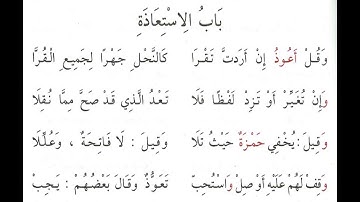 بَابُ الِاسْتِعَاذَةِ
وَقُلْ أَعُوذُ إِنْ أَرَدتَّ تَقْرَا كَالنَّحْلِ جَهْرًا لِجَمِيعِ الْقُرَّا
وَإِنْ تُغَيِّرْ أَوْ تَزِدْ لَفْظًا فَلَا تَعْدُ الَّذِي قَدْ صَحَّ مِمَّا نُقِلَا
وَقِيلَ: يُخْفِي حَمْزَةٌ حَيْثُ تَلَا وَقِيلَ: لَا فَاتِحَةٌ، وَعُلِّلَا
وَقِفْ لَهُمْ عَلَيْهِ أَوْ صِلْ وَاسْتُحِبّْ تَعَوُّذٌ وَقَالَ بَعْضُهُمْ: يَجِبْ